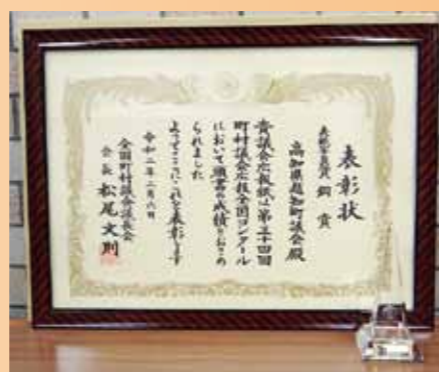 表彰状
表紙写真賞 銅賞
高知県越知町議会殿
貴議会広報紙は第三十四回
町村議会広報全国コンクール
において頭書の成績をおさめ
られました
よってここにこれを表彰します
令和二年二月六日
全国町村議会議長会
会長 松尾文則